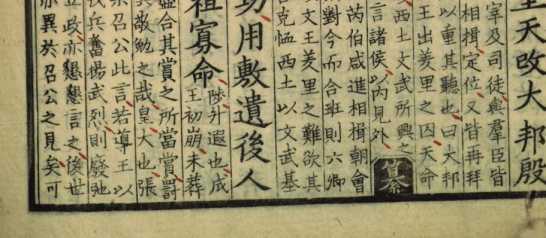 天攺大邦殷
宰及司徒與羣臣皆
相揖定位又皆再拜
以重其聽也曰大邦
王出羑里之囚天命
西土文武所興之
纂
言諸侯以内見外
芮伯咸進相揖朝會
對今而合班則六卿
文王羑里之難欲其
克恤西土以文武基
功用敷遺後人
祖寡命
陟升遐也成
王初崩未葬
合其賞之所當賞罰
其敬勉之哉皇大也張
召公此言若導王以
兵奮揚武烈則廢弛
立政亦懇懇言之後世
亦異於召公之見矣可